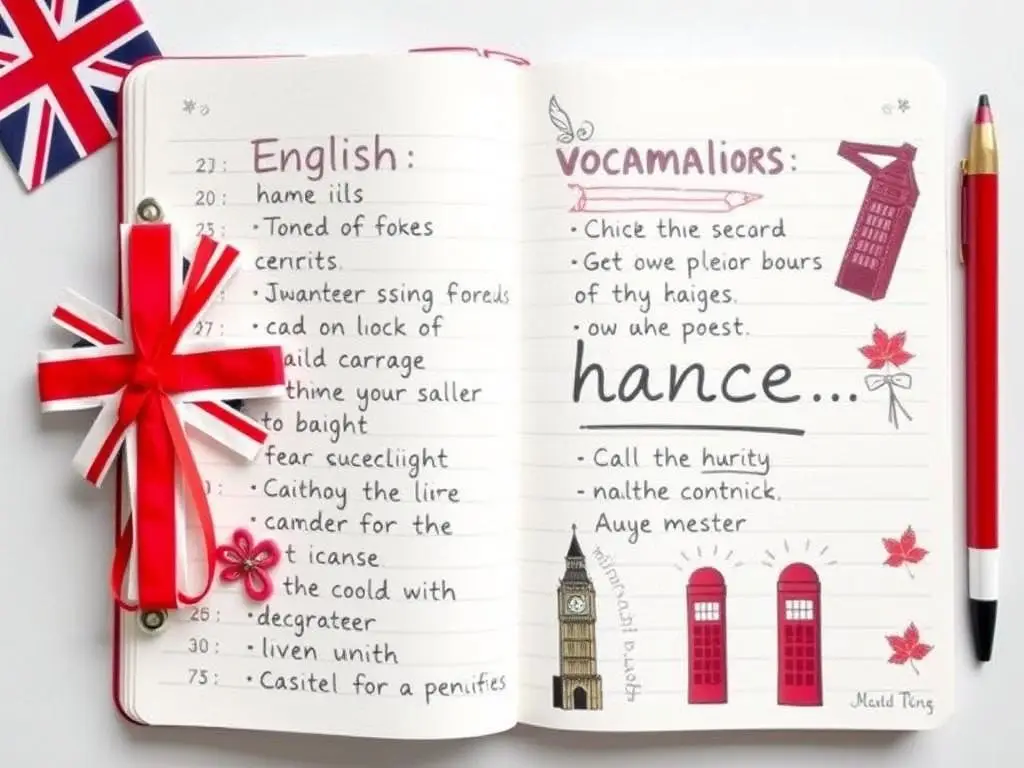 English:
23:
20: hame iils
25: • Toned of fokes
cenrits.
: • Jwanteer ssing foreds
27: • cad on liock of
aild carrage
thine your saller
to baight
fear sucecliight
: • Caithoy the liire
• camder for the
t icanse
the coold with
26: • decgrateer
30: • liven unith
75: • Casitel for a peniifies
VOCAMALIORS:
• Chick thie secard
• Get owe pleior bours
of thy haiges.
• ow uhe poest.
hance...
- Call the hurity
- nalthe contnick.
Auye mester